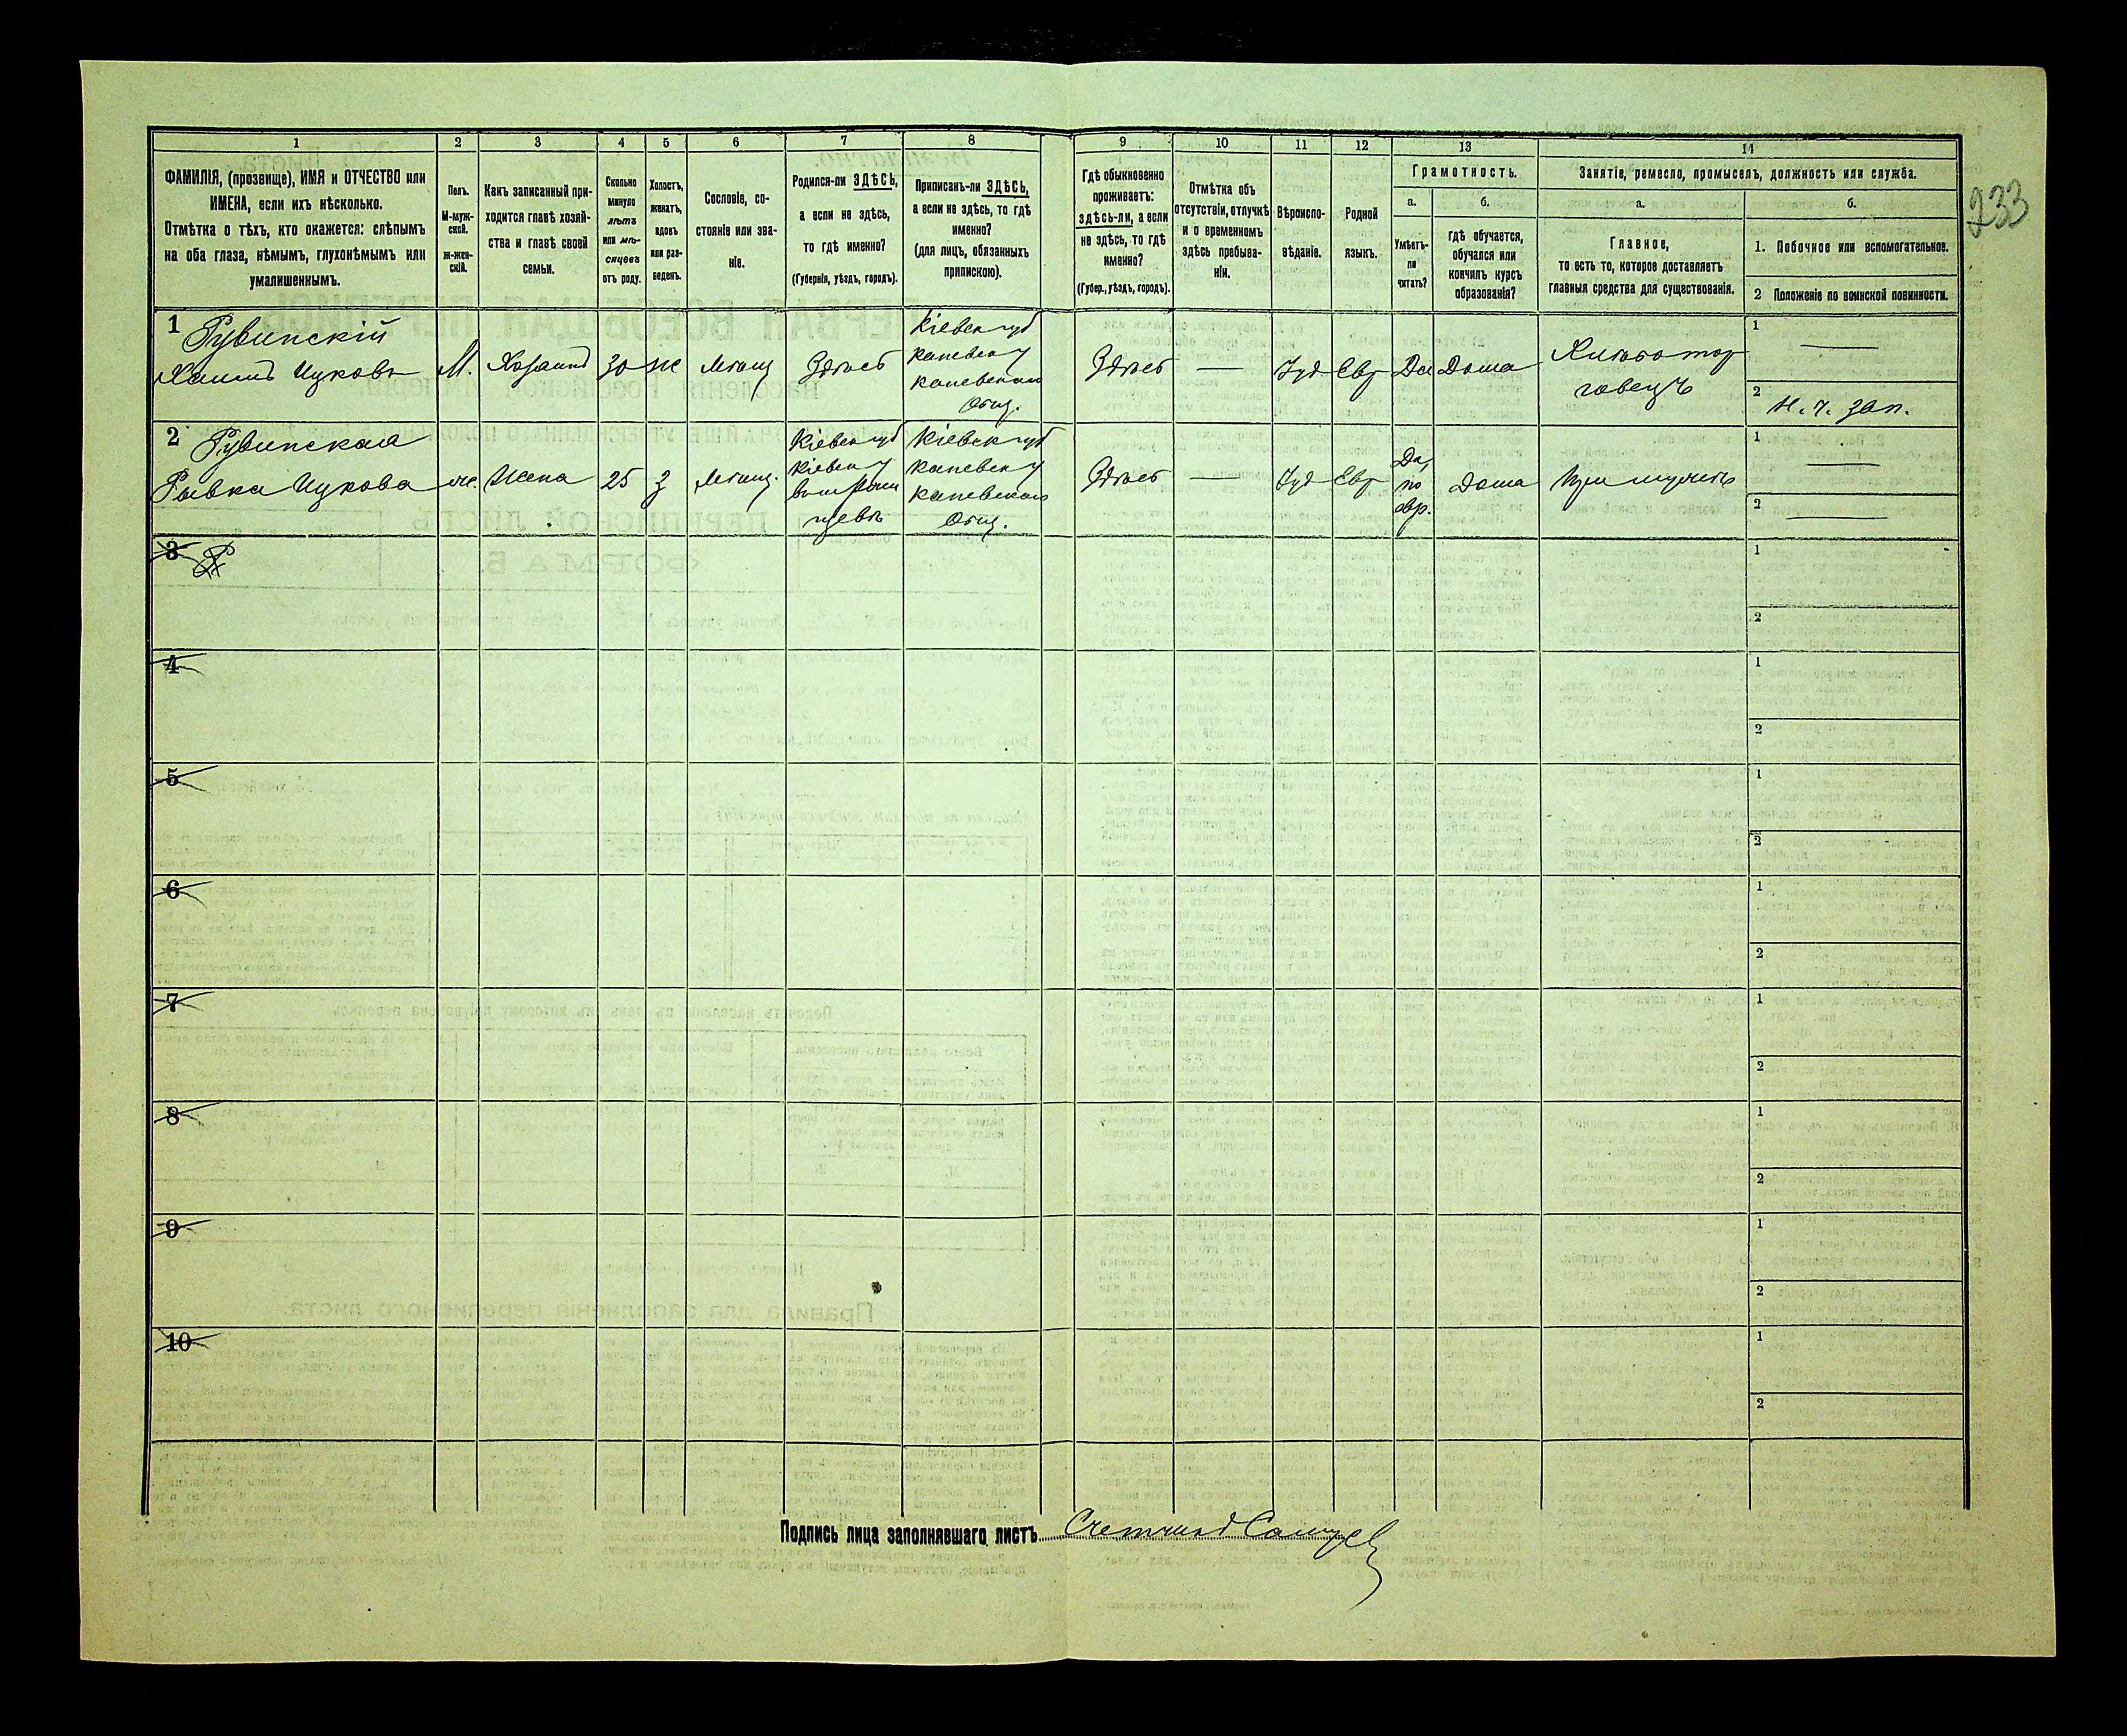 1
2
3
4
5
6
7
8
9
10
11
12
13
14
ФАМИЛІЯ, (прозвище), ИМЯ и ОТЧЕСТВО или
ИМЕНА, если ихъ нѣсколько.
Отмѣтка о тѣхъ, кто окажется: слѣпымъ
на оба глаза, нѣмымъ, глухонѣмымъ или
умалишеннымъ.
Полъ.
М-муж-
ской.
ж-жен-
скій.
Какъ записанный при-
ходится главѣ хозяй-
ства и главѣ своей
семьи.
Сколько
минуло
лѣтъ
или мѣ-
сяцевъ
отъ роду.
Холостъ,
женатъ,
вдовъ
или раз-
веденъ.
Сословіе, со-
стояніе или зва-
ніе.
Родился-ли ЗДѢСЬ,
а если не здѣсь,
то гдѣ именно?
(Губернія, уѣздъ, городъ).
Приписанъ-ли ЗДѢСЬ,
а если не здѣсь, то гдѣ
именно?
(для лицъ, обязанныхъ
припискою).
Гдѣ обыкновенно
проживаетъ:
здѣсь-ли, а если
не здѣсь, то гдѣ
именно?
(Губер., уѣздъ, городъ).
Отмѣтка объ
отсутствіи, отлучкѣ
и о временномъ
здѣсь пребыва-
ніи.
Вѣроиспо-
вѣданіе.
Родной
языкъ.
Грамотность.
а.
Умѣетъ-
ли
читать?
б.
гдѣ обучается,
обучался или
кончилъ курсъ
образованія?
Занятіе, ремесло, промыселъ, должность или служба.
а.
Главное,
то есть то, которое доставляетъ
главныя средства для существованія.
б.
1. Побочное или вспомогательное.
2 Положеніе по воинской повинности.
233
1 Рувинскій
Хаимъ Ицковъ
М.
Хозяинъ
30
ж
Мѣщ
Здѣсь
Кіевск губ
Каневск у
Каневском
Общ.
Здѣсь
—
Іуд
Евр
Да
Дома
Хлѣботор
говецъ
1 —
2 Н. ч. зап.
2 Рувинская
Рывка Ицкова
ж.
Жена
25
З
Мѣщ.
Кіевск губ
Кіевск у
Кіевск губ
Каневск у
Каневском
Общ.
Здѣсь
—
Іуд
Евр
Да,
по
евр.
Дома
При мужѣ
1 —
2 —
3
1
2
4
1
2
5
1
2
6
1
2
7
1
2
8
1
2
9
1
2
10
1
2
Подпись лица заполнявшаго листъ Счетчикъ